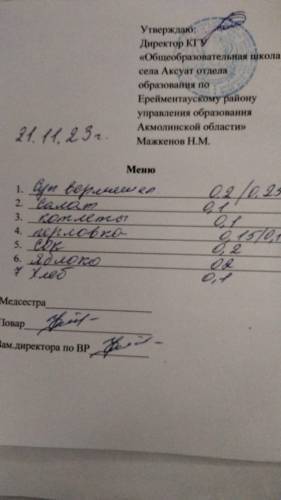 Утверждаю:
Директор КГУ
«Общеобразовательная школа
села Аксуат отдела
образования по
Ерейментаускому району
управления образования
Акмолинской области»
Мажкенов Н.М.
21.11.23г.
Меню
1. Суп вермишел 0,2/0,25
2. салат 0,1
3. котлеты 0,1
4. перловка 0,15/0,1
5. сок 0,2
6. яблоко 02
7 Хлеб 0,1
Медсестра
Повар
Зам.директора по ВР